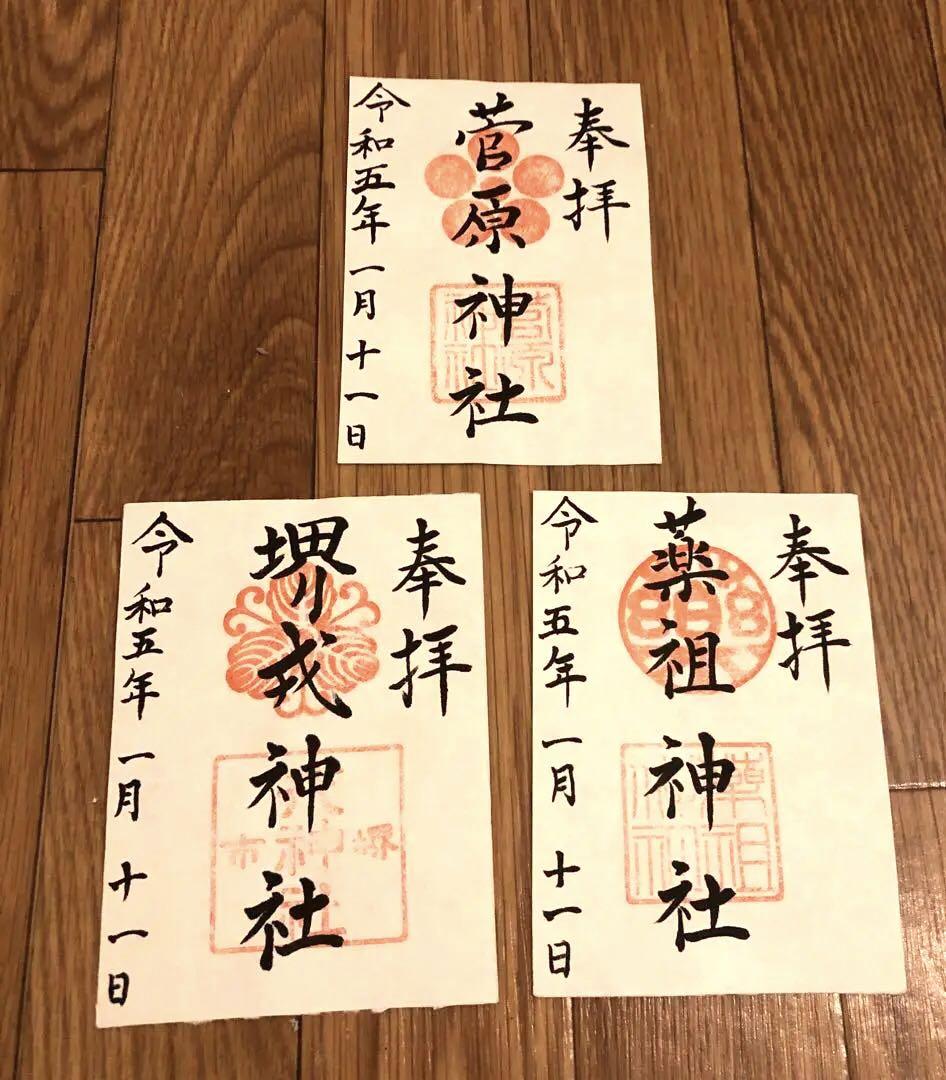 奉拝
菅原神社
令和五年一月十一日
奉拝
薬祖神社
令和五年一月十一日
奉拝
堺戎神社
令和五年一月十一日
菅原神社
薬祖神社
堺
神
市